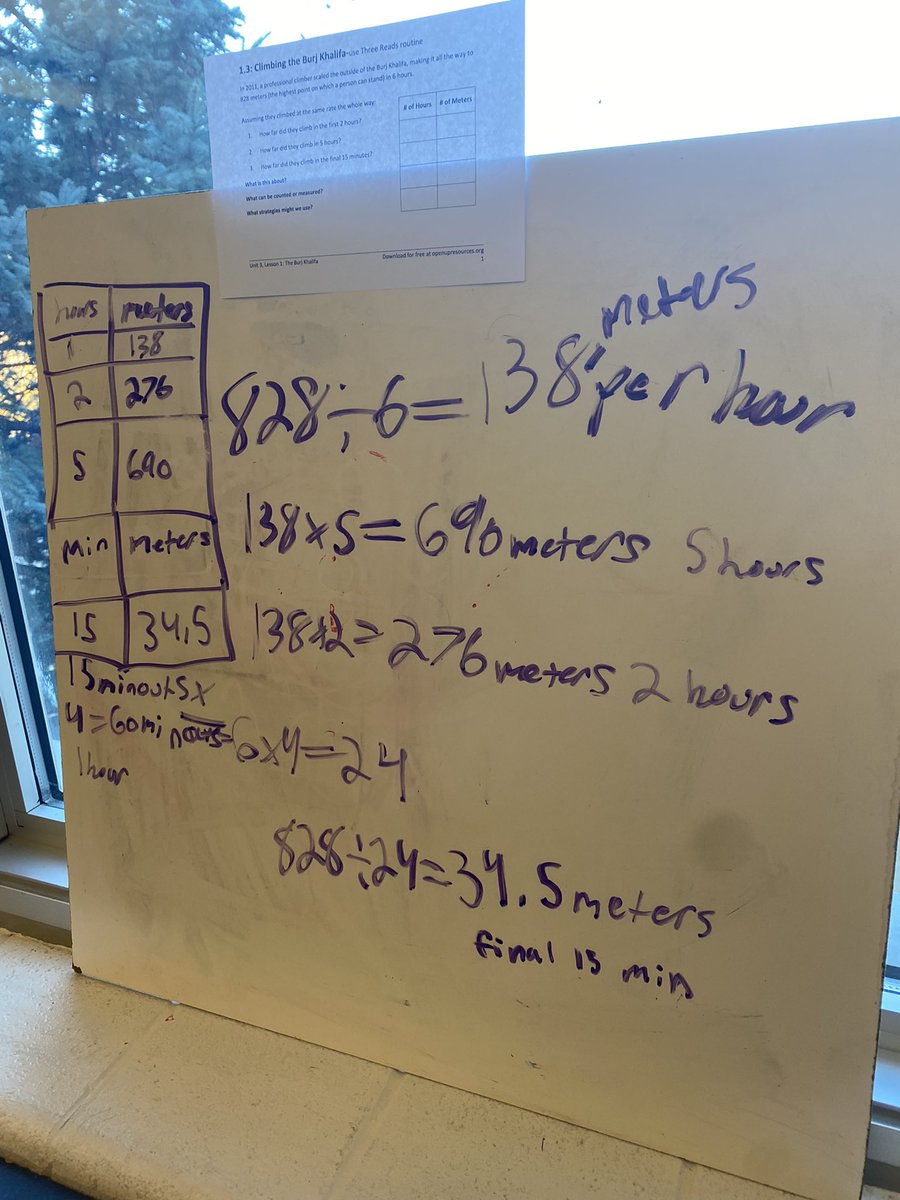 1.3: Climbing the Burj Khalifa-use Three Reads routine
In 2011, a professional climber scaled the outside of the Burj Khalifa, making it all the way to
828 meters (the highest point on which a person can stand) in 6 hours.
Assuming they climbed at the same rate the whole way:
1. How far did they climb in the first 2 hours?
2. How far did they climb in 5 hours?
3. How far did they climb in the final 15 minutes?
What is this about?
What can be counted or measured?
What strategies might we use?
# of Hours # of Meters
Unit 3, Lesson 1: The Burj Khalifa
Download for free at openupresources.org
1
hours meters
1 138
2 276
5 690
Min meters
15 34.5
15 minouts x
4 = 60 min
1 hour
828 ÷ 6 = 138 meters per hour
138 x 5 = 690 meters 5 hours
138 x 2 = 276 meters 2 hours
6 x 4 = 24
828 ÷ 24 = 34.5 meters
final 15 min